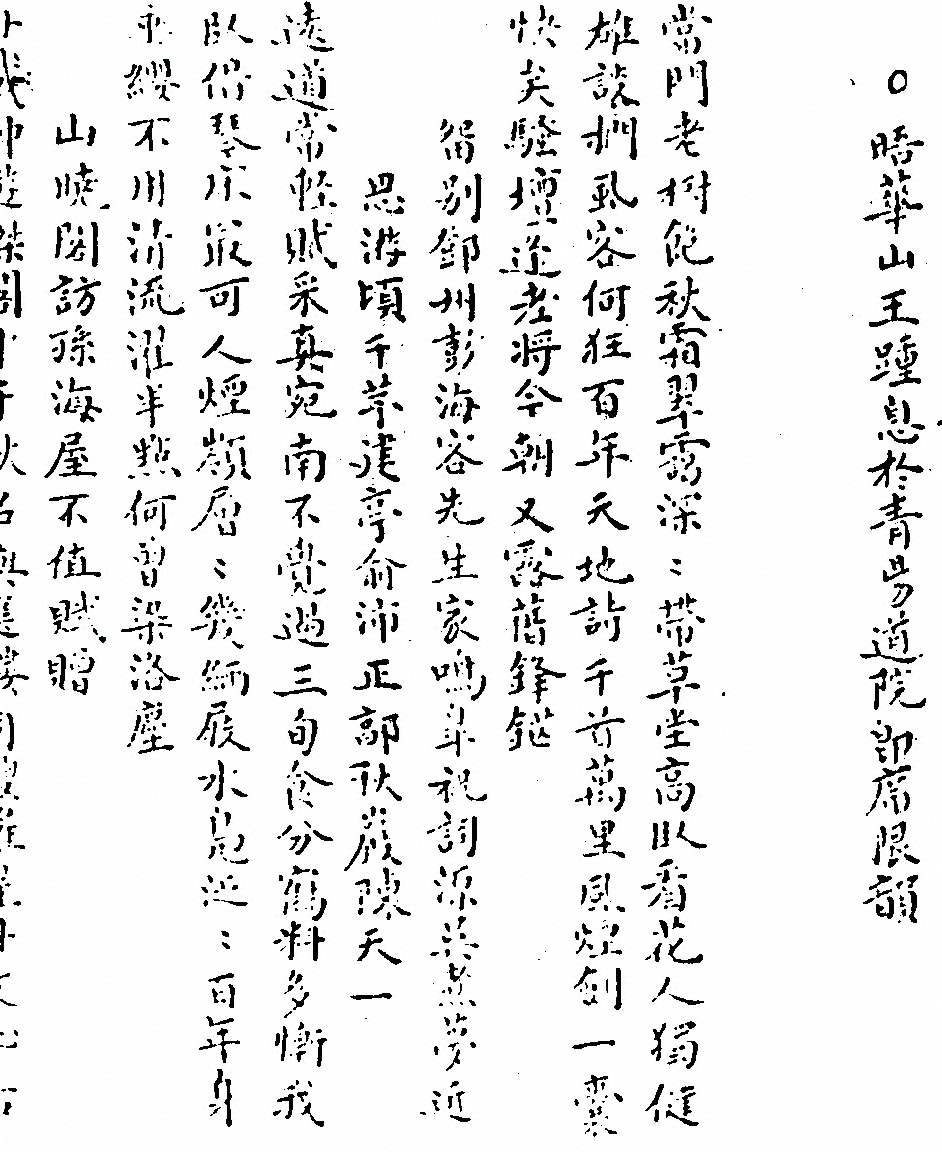 ○晤華山王踵息於青昜道院即席限韻
當門老樹飽秋霜翠靄深〻帶草堂高臥看花人獨健
雄談捫虱客何狂百年天地詩千首萬里風煙劍一囊
快矣騷壇逢老將今朝又露舊鋒鋩
留別鄧州彭海客先生家鳴臯祝詞源吳熹夢近
思游頃千莘建亭俞沛正郭秋巖陳天一
遠道常輕賦采真宛南不覺過三旬食分鶴料多慚我
臥借琴床最可人煙巔層〻幾緉屐水鳧近〻百年身
乘纓不用清流濯半點何曾染洛塵
山曉閣訪孫海屋不值賦贈